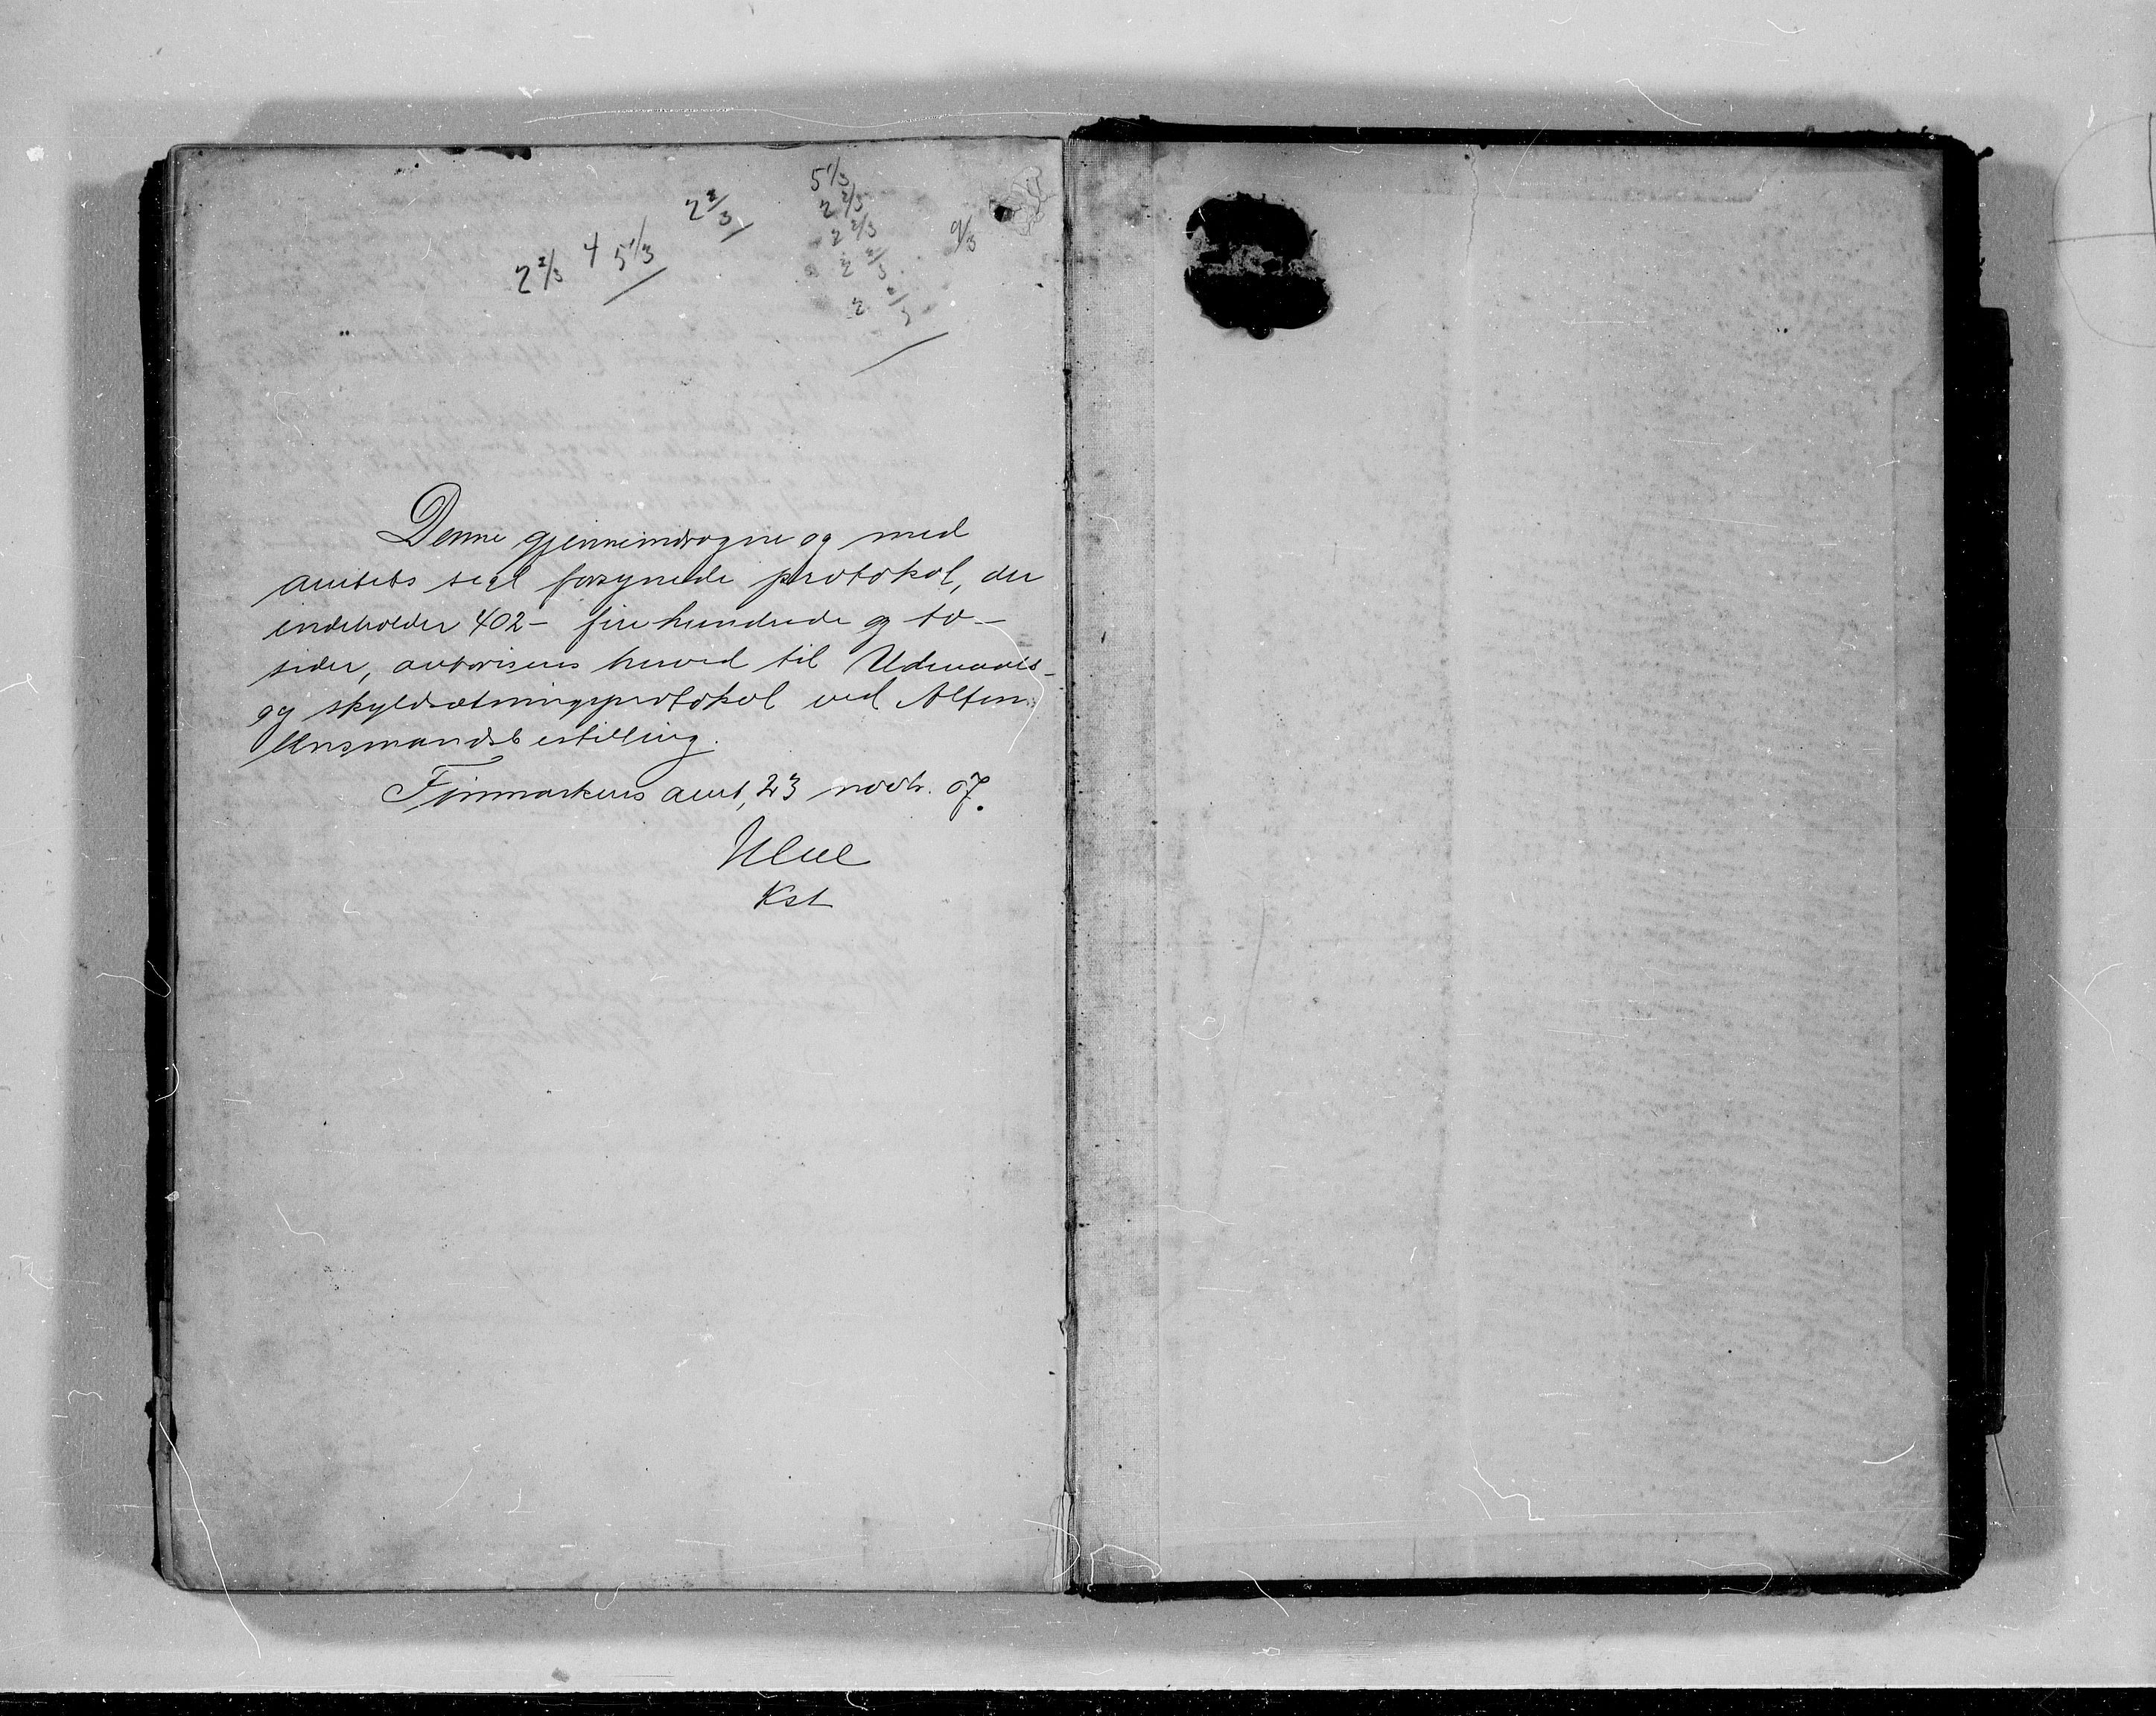 2 2/3 4 5 1/3
2 2/3
5 1/3
2 2/3
2 2/3
2 2/3
2 2/3
9/3
Denne gjennemdragne og med
amtets segl forsynede protokol, der
indeholder 402 - fire hundrede og to -
sider, autoriseres herved til Udmaals-
og skyldsætningsprotokol ved Alten
lensmandsbestilling.
Finmarkens amt, 23 novbr. 07.
Kst